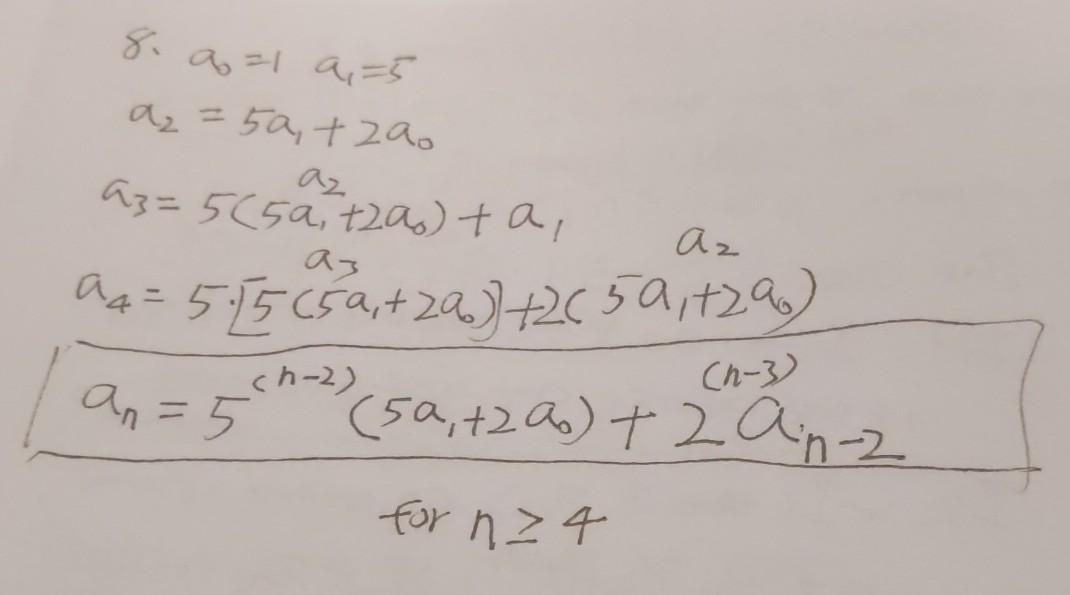 8. a₀=1 a₁=5
a₂ = 5a₁+2a₀
a₂
a₃= 5(5a₁+2a₀)+a₁
a₃ a₂
a₄= 5·[5(5a₁+2a₀)]+2(5a₁+2a₀)
aₙ = 5⁽ⁿ⁻²⁾(5a₁+2a₀)+2⁽ⁿ⁻³⁾aₙ₋₂
for n ≥ 4